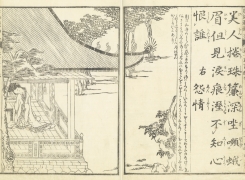 美人捲珠簾深坐嚬蛾
眉但見淚痕溼不知心
恨誰
右怨情